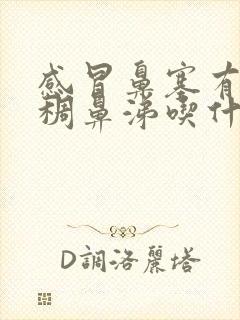 感冒鼻塞有
稠鼻涕喫什
D調洛麗塔